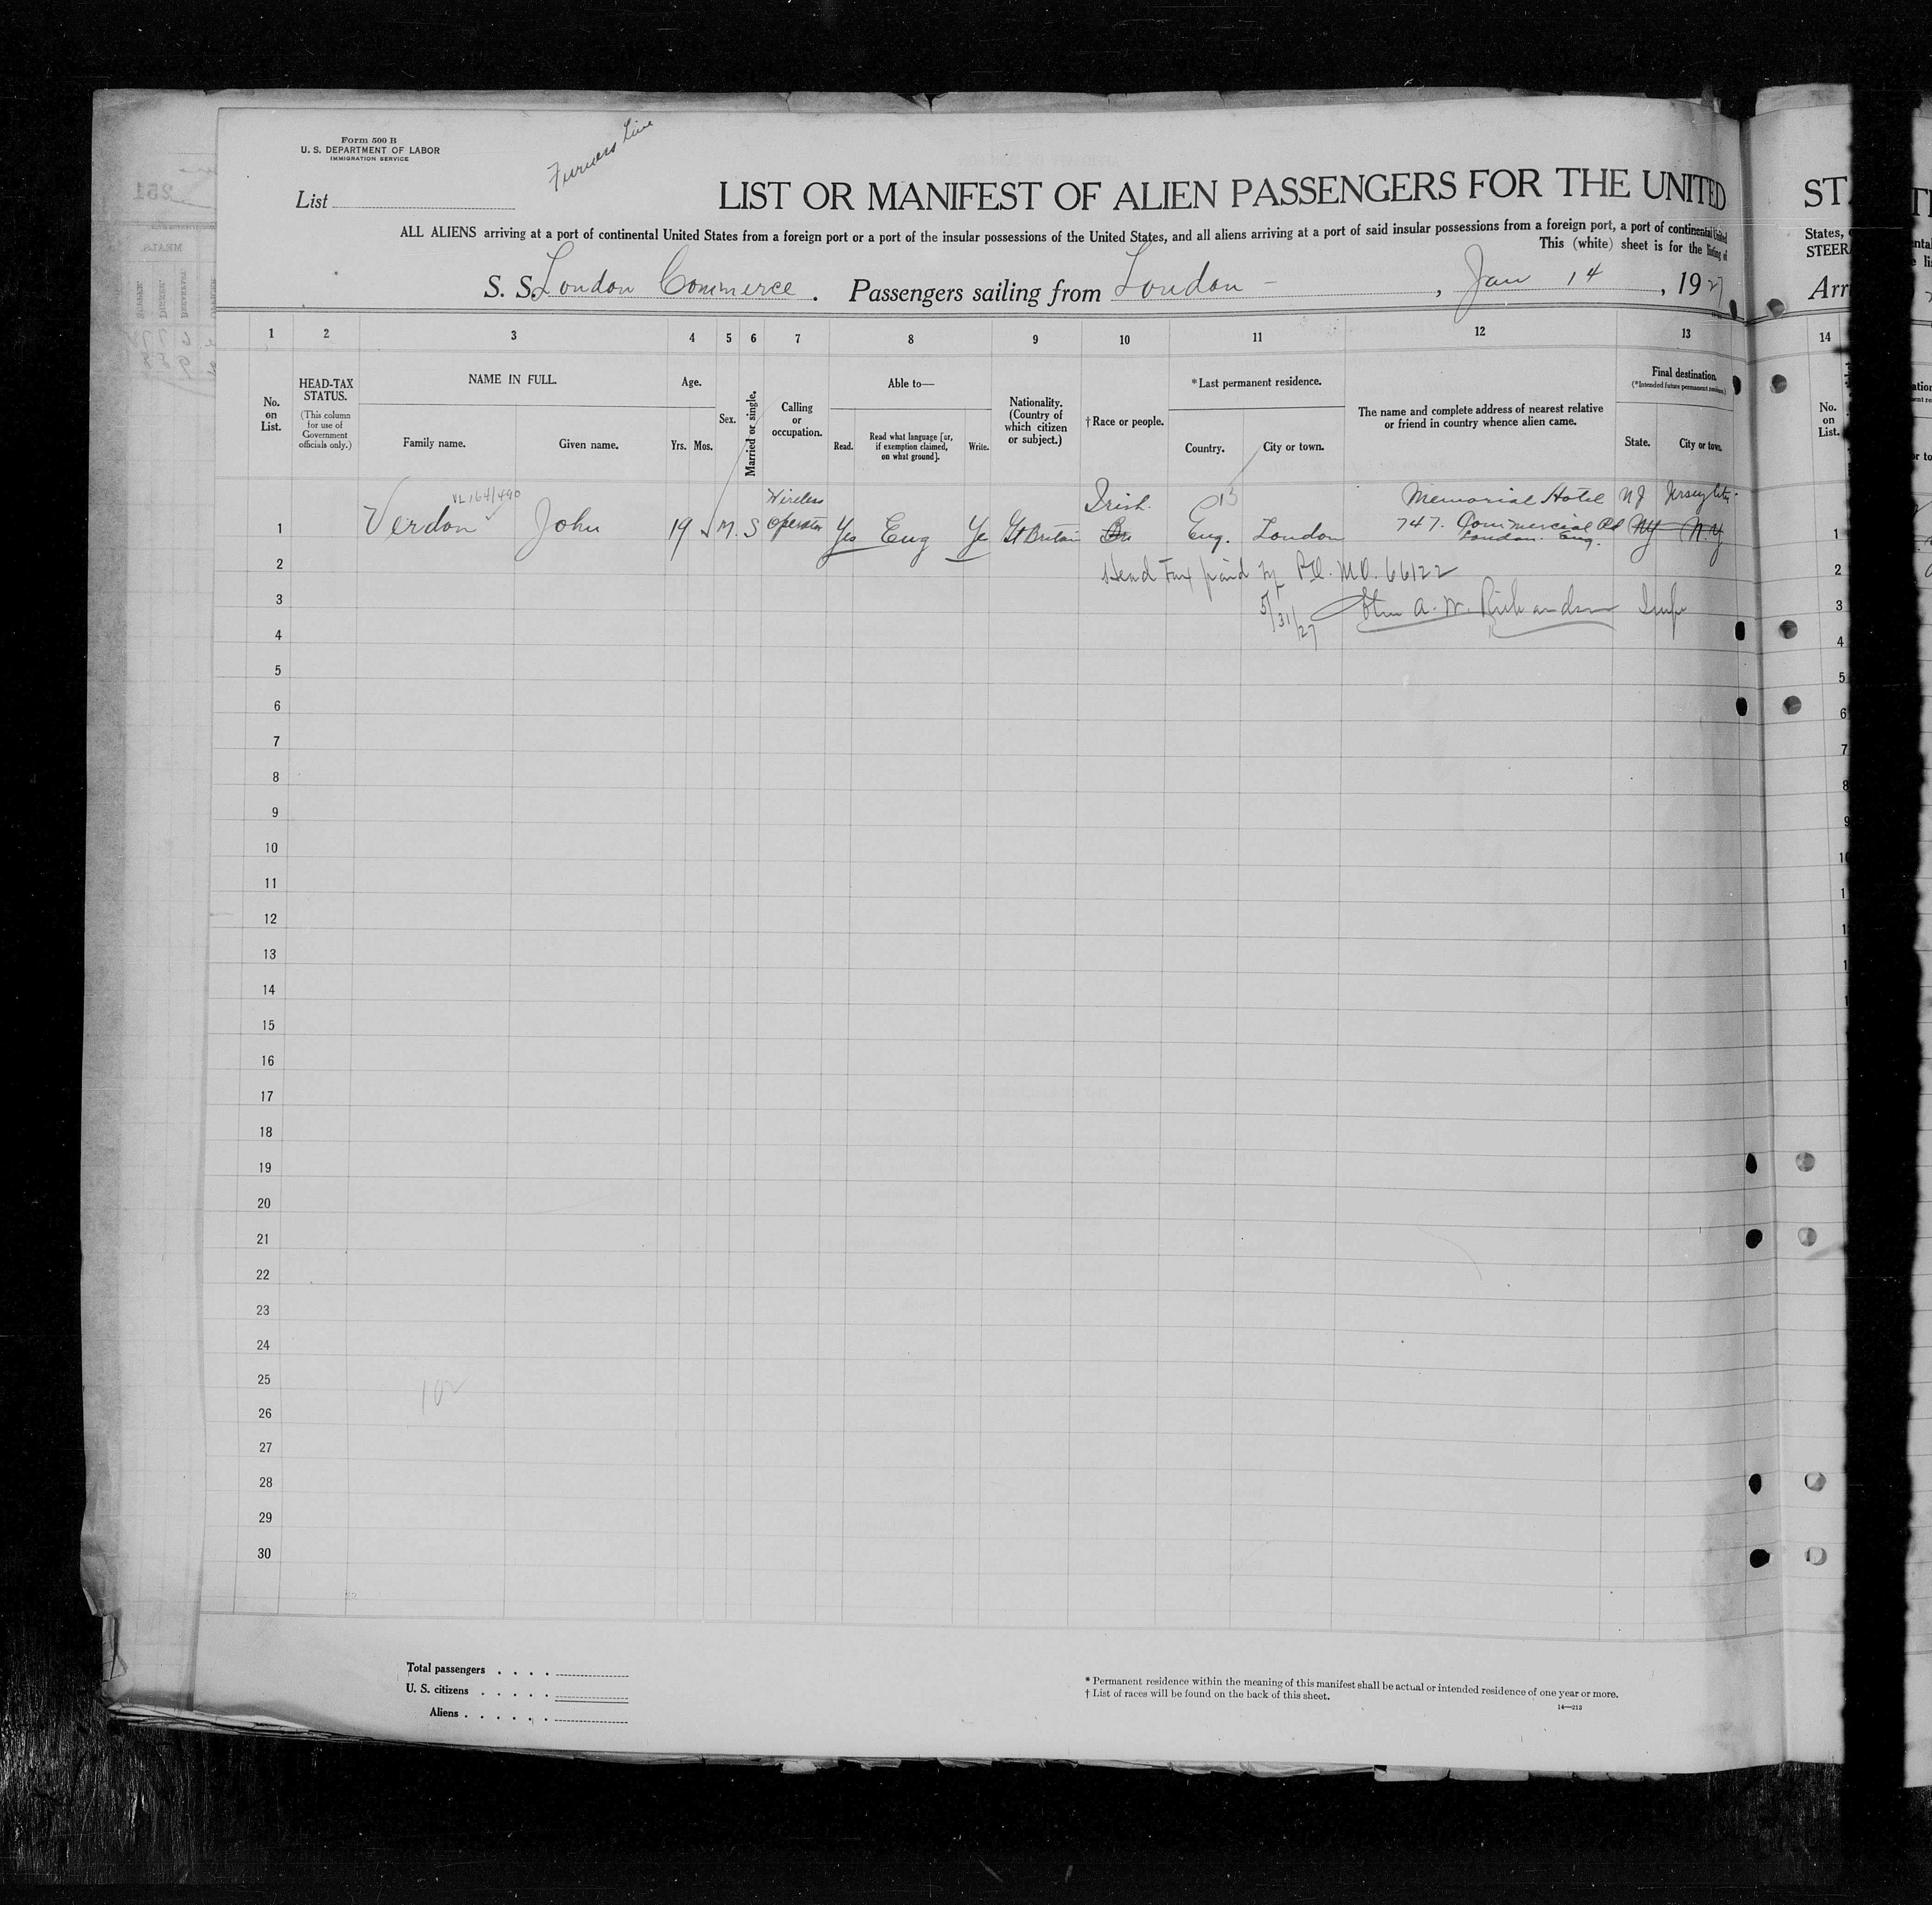 Form 500 B
U. S. DEPARTMENT OF LABOR
IMMIGRATION SERVICE
Furness Line
List
LIST OR MANIFEST OF ALIEN PASSENGERS FOR THE UNITED
ALL ALIENS arriving at a port of continental United States from a foreign port or a port of the insular possessions of the United States, and all aliens arriving at a port of said insular possessions from a foreign port, a port of continental United
This (white) sheet is for the listing of
S. S. London Commerce. Passengers sailing from London - , Jan 14, 1927
1 2 3 4 5 6 7 8 9 10 11 12 13
No. on List.
HEAD-TAX STATUS.
(This column for use of Government officials only.)
NAME IN FULL.
Family name. Given name.
Age.
Yrs. Mos.
Sex.
Married or single.
Calling or occupation.
Able to—
Read. Read what language [or, if exemption claimed, on what ground]. Write.
Nationality. (Country of which citizen or subject.)
† Race or people.
* Last permanent residence.
Country. City or town.
The name and complete address of nearest relative or friend in country whence alien came.
Final destination.
(* Intended future permanent residence.)
State. City or town.
VL 164/490
1 Verdon John 19 M. S Wireless Operator Yes Eng Ye Gt Britain Irish. Eng. London Memorial Hotel NJ Jersey City
747. Commercial Rd NY N.Y
London. Eng. 1
2 Head Tax paid by P.O. M.O. 66122
3 5/31/27 A. W. Richardson Insp
4
5
6
7
8
9
10
11
12
13
14
15
16
17
18
19
20
21
22
23
24
25
26
27
28
29
30
Total passengers
U. S. citizens
Aliens
* Permanent residence within the meaning of this manifest shall be actual or intended residence of one year or more.
† List of races will be found on the back of this sheet.
14—213
STA
States,
STEER
Arr
14
No. on List.
1
2
3
4
5
6
7
8
9